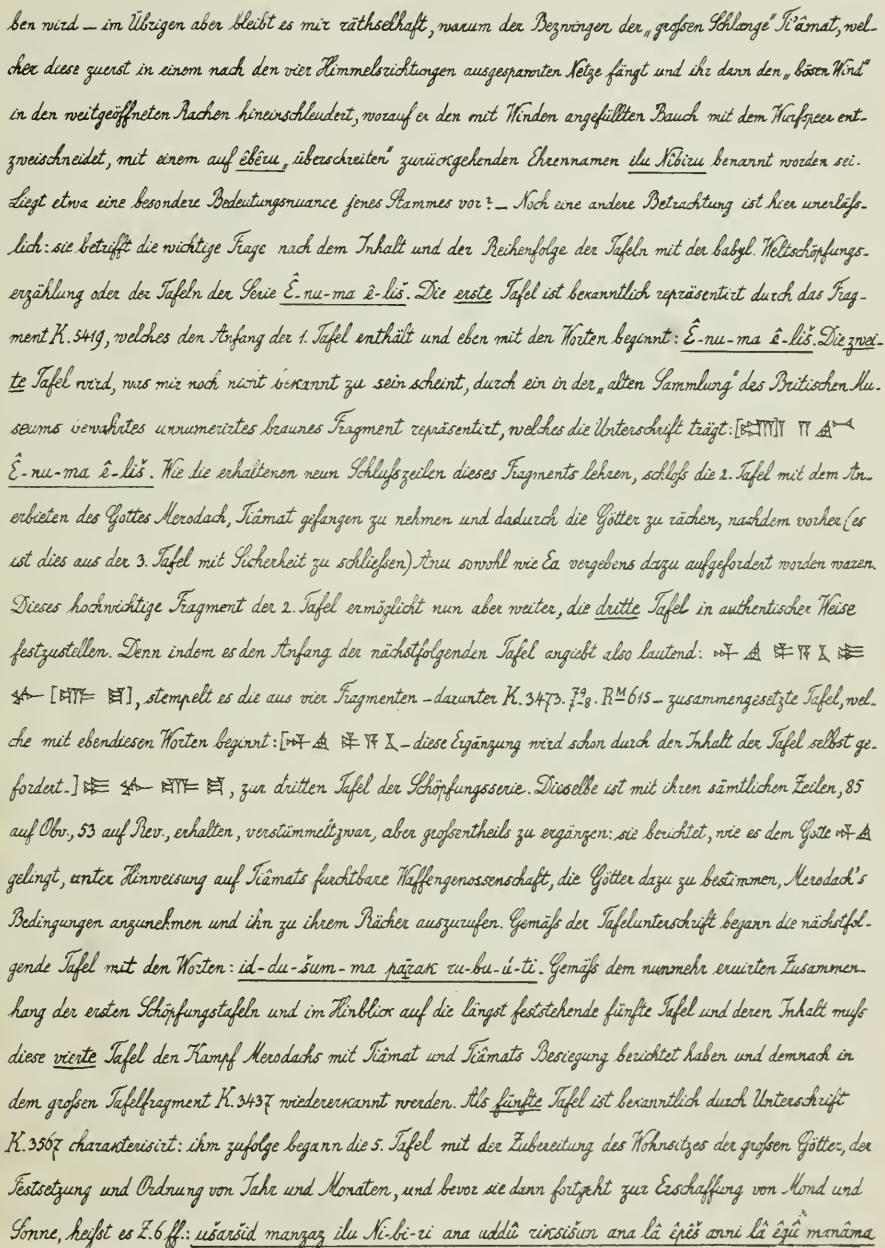 ben wird — im Übrigen aber bleibt es mir räthselhaft, warum der Bezwingen der „großen Schlange" Ti'âmat, wel-
cher diese zuerst in einem nach den vier Himmelsrichtungen ausgespannten Netze fängt und ihr dann den „bösen Wind"
in den weitgeöffneten Rachen hineinschleudert, worauf er den mit Winden angefüllten Bauch mit dem Wurfspeer ent-
zweischneidet, mit einem auf êbêru „überschreiten" zurückgehenden Ehrennamen ilu Nibiru benannt worden sei.
Liegt etwa eine besondere Bedeutungsnuance jenes Stammes vor? — Noch eine andere Betrachtung ist hier unerläß-
lich: sie betrifft die wichtige Frage nach dem Inhalt und der Reihenfolge der Tafeln mit der babyl. Weltschöpfungs-
erzählung oder der Tafeln der Serie Ê-nu-ma ê-liš. Die erste Tafel ist bekanntlich repräsentirt durch das Frag-
ment K. 5419, welches den Anfang der 1. Tafel enthält und eben mit den Worten beginnt: Ê-nu-ma ê-liš. Die zwei-
te Tafel wird, was mir noch nicht bekannt zu sein scheint, durch ein in der „alten Sammlung" des Britischen Mu-
seums bewahrtes unnumerirtes braunes Fragment repräsentirt, welches die Unterschrift trägt:
Ê-nu-ma ê-liš. Wie die erhaltenen neun Schlußzeilen dieses Fragments lehren, schloß die 2. Tafel mit dem An-
erbieten des Gottes Merodach, Tiâmat gefangen zu nehmen und dadurch die Götter zu rächen, nachdem vorher (es
ist dies aus der 3. Tafel mit Sicherheit zu schließen) Anu sowohl wie Ea vergebens dazu aufgefordert worden waren.
Dieses hochwichtige Fragment der 2. Tafel ermöglicht nun aber weiter, die dritte Tafel in authentischer Weise
festzustellen. Denn indem es den Anfang der nächstfolgenden Tafel angiebt also lautend:
stempelt es die aus vier Fragmenten — darunter K. 3473. 79-8. RM 615 — zusammengesetzte Tafel, wel-
che mit ebendiesen Worten beginnt: — diese Ergänzung wird schon durch den Inhalt der Tafel selbst ge-
fordert. —] , zur dritten Tafel der Schöpfungsserie. Dieselbe ist mit ihren sämtlichen Zeilen, 85
auf Obv., 53 auf Rev., erhalten, verstümmelt zwar, aber großentheils zu ergänzen: sie berichtet, wie es dem Gotte
gelingt, unter Hinweisung auf Tiâmats furchtbare Waffengenossenschaft, die Götter dazu zu bestimmen, Merodach's
Bedingungen anzunehmen und ihn zu ihrem Rächer auszurufen. Gemäß der Tafelunterschrift begann die nächstfol-
gende Tafel mit den Worten: id-du-šum-ma parak ru-bu-ú-ti. Gemäß dem nunmehr eruirten Zusammen-
hang der ersten Schöpfungstafeln und im Hinblick auf die längst feststehende fünfte Tafel und deren Inhalt muß
diese vierte Tafel den Kampf Merodachs mit Tiâmat und Tiâmats Besiegung berichtet haben und demnach in
dem großen Tafelfragment K. 3437 wiedererkannt werden. Als fünfte Tafel ist bekanntlich durch Unterschrift
K. 3567 charakterisirt: ihm zufolge begann die 5. Tafel mit der Zubereitung des Wohnsitzes der großen Götter, der
Festsetzung und Ordnung von Jahr und Monaten, und bevor sie dann fortgeht zur Erschaffung von Mond und
Sonne, heißt es Z. 6 ff.: ušaršid manzaz ilu Ni-bi-ri ana uddû riksišun ana lâ êpêš anni lâ êgû manâma